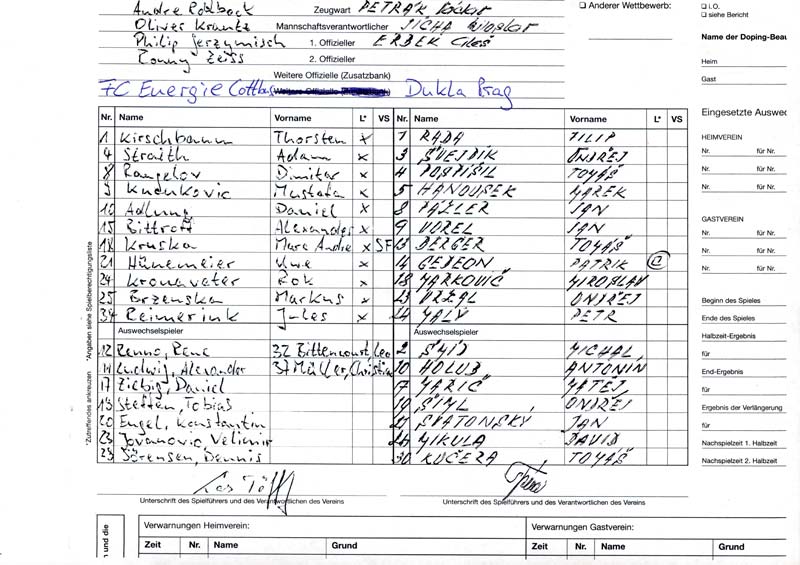 Andre Rohbock Zeugwart PETRÁK
Oliver Krautz Mannschaftsverantwortlicher MÍCHA
Philip Jerzymisch 1. Offizieller ERBEK
Conny Zeiss 2. Offizieller
Weitere Offizielle (Zusatzbank)
FC Energie Cottbus Dukla Prag
Anderer Wettbewerb:
i.O.
siehe Bericht
Name der Doping-Beau
Heim
Gast
Nr. Name Vorname L* VS Nr. Name Vorname L* VS
1 Kirschbaum Thorsten x 1 RADA FILIP
4 Straith Adam x 3 ŠVEJDÍK ONDŘEJ
8 Rangelov Dimitar x 4 POSPÍŠIL TOMÁŠ
9 Kucukovic Mustafa x 5 HANOUSEK MAREK
10 Adlung Daniel x 8 PÁZLER JAN
15 Bittroff Alexander x 9 VOREL JAN
18 Kruska Marc Andre x SF 13 BERGER TOMÁŠ
21 Hünemeier Uwe x 14 GEDEON PATRIK
24 Kronaveter Rok x 18 MARKOVIČ MIROSLAV
25 Brzenska Markus x 23 VRZAL ONDŘEJ
34 Reimerink Jules x 24 MALÝ PETR
Auswechselspieler Auswechselspieler
12 Renno, Rene 32 Bittencourt, Leo 2 ŠMÍD MICHAL
14 Ludwig, Alexander 37 Müller, Christian 10 HOLUB ANTONÍN
17 Ziebig, Daniel 17 MARIČ MATEJ
19 Steffen, Tobias 19 ONDŘEJ
20 Engel, Konstantin JAN
23 Jovanovic, Velimir 26 MIKULA DAVID
29 Sörensen, Dennis 30 KUČERA TOMÁŠ
Unterschrift des Spielführers und des Verantwortlichen des Vereins Unterschrift des Spielführers und des Verantwortlichen des Vereins
*Angaben siehe Spielberechtigungsliste
*Zutreffendes ankreuzen
Eingesetzte Auswec
HEIMVEREIN
Nr. für Nr.
Nr. für Nr.
Nr. für Nr.
GASTVEREIN
Nr. für Nr.
Nr. für Nr.
Nr. für Nr.
Beginn des Spieles
Ende des Spieles
Halbzeit-Ergebnis
für
End-Ergebnis
für
Ergebnis der Verlängerung
für
Nachspielzeit 1. Halbzeit
Nachspielzeit 2. Halbzeit
n und die
Verwarnungen Heimverein: Verwarnungen Gastverein:
Zeit Nr. Name Grund Zeit Nr. Name Grund